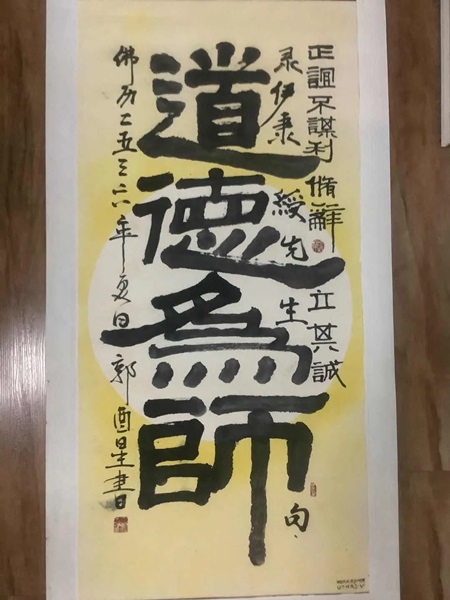 正誼不謀利脩辭立其誠
录伊秉綬先生句
道德為師
佛历二五三六年夏日郭酉星書